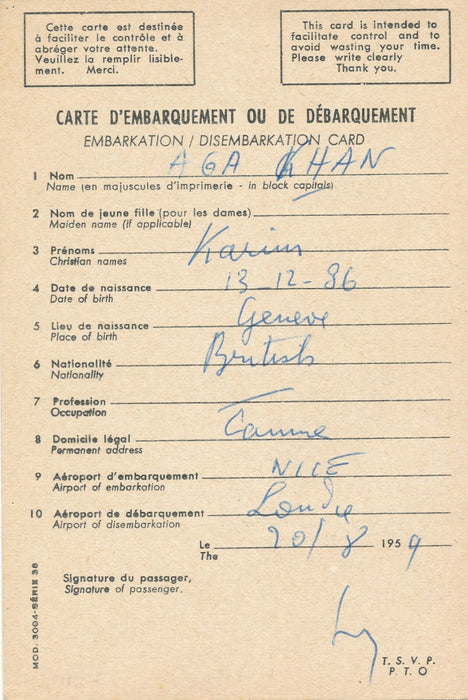 Cette carte est destinée
à faciliter le contrôle et à
abréger votre attente.
Veuillez la remplir lisible-
ment. Merci.
This card is intended to
facilitate control and to
avoid wasting your time.
Please write clearly
Thank you.
CARTE D'EMBARQUEMENT OU DE DÉBARQUEMENT
EMBARKATION / DISEMBARKATION CARD
1 Nom AGA KHAN
Name (en majuscules d'imprimerie - in block capitals)
2 Nom de jeune fille (pour les dames)
Maiden name (if applicable)
3 Prénoms Karim
Christian names
4 Date de naissance 13-12-36
Date of birth
5 Lieu de naissance Geneve
Place of birth
6 Nationalité British
Nationality
7 Profession
Occupation
8 Domicile légal
Permanent address
9 Aéroport d'embarquement NICE
Airport of embarkation
10 Aéroport de débarquement
Airport of disembarkation
Le 20/8 1959
The
Signature du passager,
Signature of passenger.
T. S. V. P.
P. T. O
MOD. 3004-SÉRIE 38